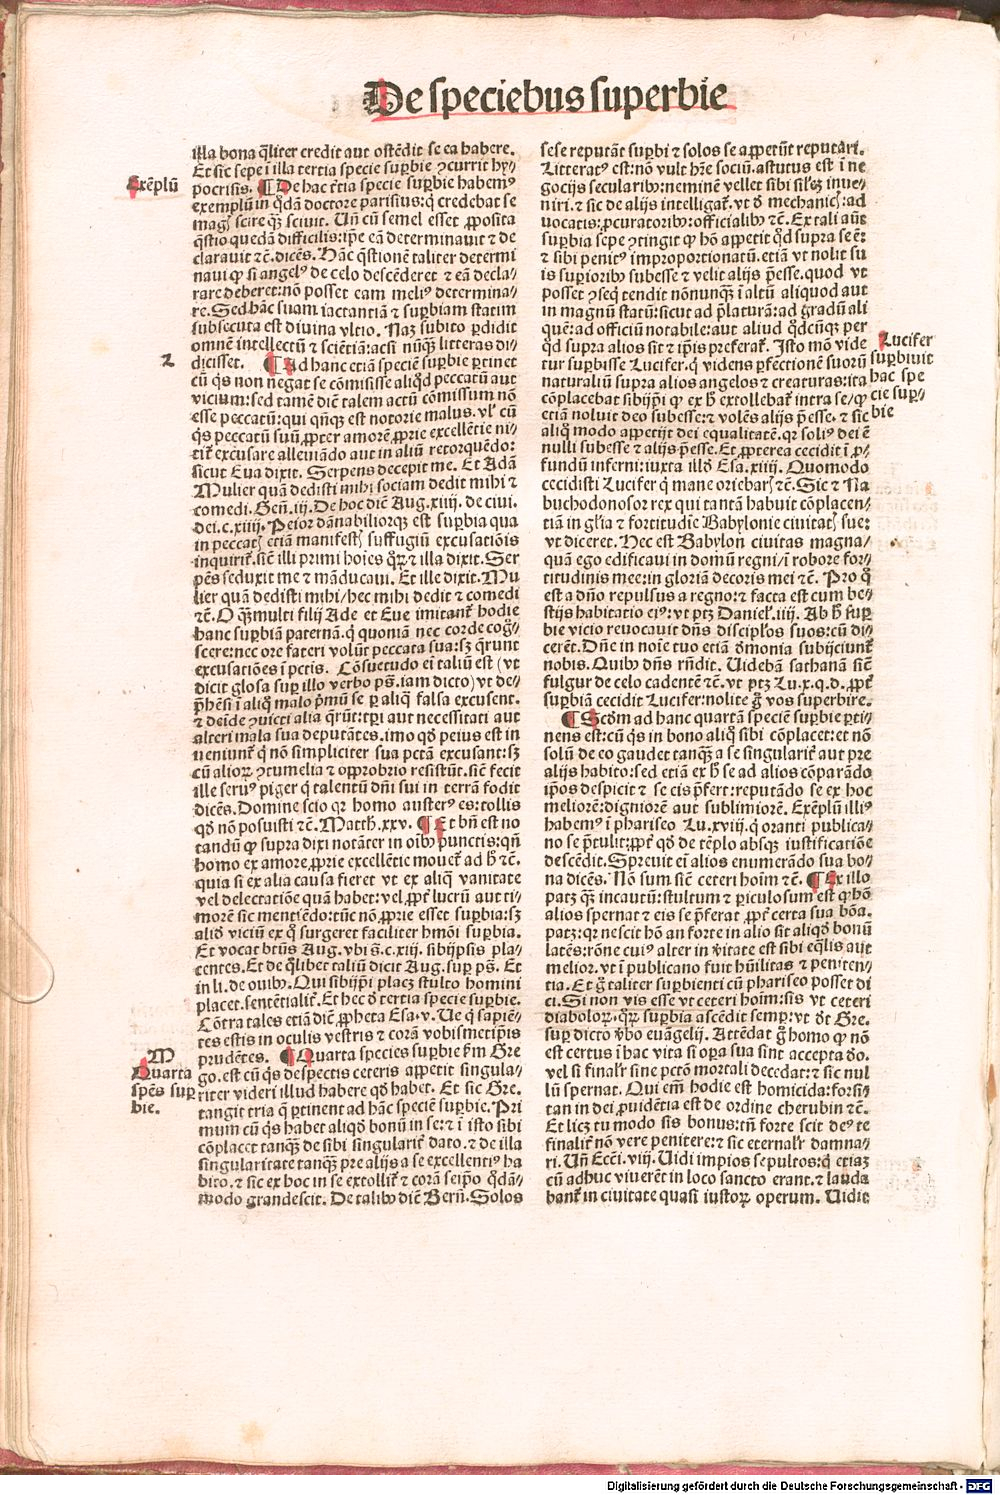 De speciebus superbie
illa bona q̃liter credit aut ostẽdit se ea habere.
Et sic sepe i illa tertia specie supbie ꝯcurrit hy⸗
pocrisis. ¶ De hac t̃tia specie supbie habemꝰ
Exẽplũ
exemplũ in q̃dã doctore parisius: q̃ credebat se
magꝭ scire qꝫ sciuit. Uñ cũ semel esset ꝓposita
q̃stio quedã difficilis: ip̃e eã determinauit ⁊ de
clarauit ⁊c̃. dicẽs. Hãc q̃stionẽ taliter determi
naui ꝙ si angelꝰ de celo descẽderet ⁊ eã decla⸗
rare deberet: nõ posset eam meliꝰ determina⸗
re. Sed hãc suam iactantiã ⁊ supbiam statim
subsecuta est diuina vltio. Naꝫ subito ꝑdidit
omnẽ intellectũ ⁊ sciẽtiã: acsi nũqꝫ litteras di⸗
2
dicisset. ¶ Ad hanc etiã speciẽ supbie ꝑtinet
cũ q̃s non negat se cõmisisse aliq̃d peccatũ aut
vicium: sed tamẽ diẽ talem actũ cõmissum nõ
esse peccatũ: qui qñqꝫ est notorie malus. vl̃ cũ
q̃s peccatũ suũ ꝓpter amorẽ ꝓprie excellẽtie ni⸗
tit̃ excusare alleuiãdo aut in aliũ retorquẽdo:
sicut Eua dixit. Serpens decepit me. Et Adã
Mulier quã dedisti mihi sociam dedit mihi ⁊
comedi. Geñ. iij. De hoc diẽ Aug. xiiij. de ciui.
dei. c. xiiij. Peior dãnabiliorqꝫ est supbia qua
in peccatꝭ etiã manifestꝭ suffugiũ excusatiõis
inquirit̃. sic̃ illi primi hoĩes q̃ꝝ ⁊ illa dixit. Ser
pẽs seduxit me ⁊ mãducaui. Et ille dixit. Mu
lier quã dedisti mihi/ hec mihi dedit ⁊ comedi
⁊c̃. O qꝫ multi filij Ade et Eue imitant̃ hodie
hanc supbiã paternã. q̃ quoniã nec corde cog̃⸗
scere: nec ore fateri volũt peccata sua: sꝫ q̃runt
excusatiões i pctis. Cõsuetudo ei taliũ est (vt
dicit glosa sup illo verbo ps̃. iam dicto) vt de⸗
p̃hẽsi i aliq̃ malo p̃mũ se ꝑ aliq̃ falsa excusent.
⁊ deĩde ꝯuicti alia q̃rũt: tpi aut necessitati aut
alteri mala sua deputãtes. imo qð peius est in
ueniunt̃ q̃ nõ simpliciter sua pctã excusant: sꝫ
cũ alioꝝ ꝯtumelia ⁊ opprobrio resistũt. sic̃ fecit
ille seruꝰ piger q̃ talentũ dñi sui in terrã fodit
dicẽs. Domine scio qꝛ homo austerꝰ es: tollis
qð nõ posuisti ⁊c̃. Matth. xxv. ¶ Et bñ est no
tandũ ꝙ supra dixi notãter in oĩbꝰ punctis: qñ
homo ex amore ꝓprie excellẽtie mouet̃ ad h̃ ⁊c̃.
quia si ex alia causa fieret vt ex aliq̃ vanitate
vel delectatiõe quã habet: vel ꝓpt̃ lucrũ aut ti⸗
morẽ sic mentiẽdo: tũc nõ ꝓprie esset supbia: sꝫ
alið viciũ ex q̃ surgeret faciliter hmõi supbia.
Et vocat btũs Aug. vbi s̃. c. xiij. sibijpsis pla⸗
centes. Et de q̃libet taliũ dicit Aug. sup ps̃. Et
in li. de ouibꝰ. Qui sibijpi placꝫ stulto homini
placet. sentẽtialit̃. Et hec ð tertia specie supbie.
Cõtra tales etiã diẽ ꝓpheta Esa. v. Ue q̃ sapiẽ⸗
tes estis in oculis vestris ⁊ corã vobismetip̃is
M
prudẽtes. ¶ Quarta species supbie s̃m Gre
Quarta
spẽs sup
bie.
go. est cũ q̃s despectis ceteris appetit singula⸗
riter videri illud habere qð habet. Et sic Gre.
tangit tria q̃ ꝑtinent ad hãc speciẽ supbie. Pri
mum cũ q̃s habet aliqð bonũ in se: ⁊ i isto sibi
cõplacet tanqꝫ de sibi singularit̃ dato. ⁊ de illa
singularitate tanqꝫ pre alijs a se excellentiꝰ ha
bito. ⁊ sic ex hoc in se extollit̃ ⁊ corã seip̃o q̃dã⸗
modo grandescit. De talibꝰ diẽ Berñ. Solos
sese reputãt supbi ⁊ solos se appetũt reputari.
Litteratꝰ est: nõ vult hr̃e sociũ. astutus est i ne
gocijs secularibꝰ: neminẽ vellet sibi sil̃eꝫ inue⸗
niri. ⁊ sic de alijs intelligat̃. vt ð mechanicꝭ: ad
uocatis: ꝓcuratoribꝰ: officialibꝰ ⁊c̃. Ex tali aũt
supbia sepe ꝯtingit ꝙ hõ appetit qð supra se ẽ:
⁊ sibi penitꝰ improportionatũ. etiã vt nolit su
is supioribꝰ subesse ⁊ velit alijs p̃esse. quod vt
posset ꝯseq̃ tendit nõnunqꝫ i altũ aliquod aut
in magnũ statũ: sicut ad p̃laturã: ad gradũ ali
quẽ: ad officiũ notabile: aut aliud q̃dcũqꝫ per
Lucifer
supbiuit
hac spe
cie sup⸗
bie
qð supra alios sit ⁊ ip̃is preferat̃. Isto mõ vide
tur supbisse Lucifer. q̃ videns ꝑfectionẽ suorũ
naturaliũ supra alios angelos ⁊ creaturas: ita
cõplacebat sibijp̃i ꝙ ex h̃ extollebat̃ intra se/ ꝙ
etiã noluit deo subesse: ⁊ volẽs alijs p̃esse. ⁊ sic
aliq̃ modo appetijt dei equalitatẽ. qꝛ soliꝰ dei ẽ
nulli subesse ⁊ alijs p̃esse. Et ꝓpterea cecidit i ꝓ⸗
fundũ inferni: iuxta illð Esa. xiiij. Quomodo
cecidisti Lucifer q̃ mane oriebarꝭ ⁊c̃. Sic ⁊ Na
buchodonosor rex qui tantã habuit cõplacen⸗
tiã in gl̃ia ⁊ fortitudie Babylonie ciuitatꝭ sue:
vt diceret. Hec est Babylon ciuitas magna/
quã ego edificaui in domũ regni/ i robore for⸗
titudinis mee: in gloriã decoris mei ⁊c̃. Pro q̃
est a dño repulsus a regno: ⁊ facta est cum be⸗
stijs habitatio eiꝰ: vt ptꝫ Daniel̃. iiij. Ab h̃ sup
bie vicio reuocauit dñs disciplos suos: cũ di⸗
cerẽt. Dñe in noĩe tuo etiã demonia subijciunt̃
nobis. Quibꝰ dñs rñdit. Uidebã sathanã sic̃
fulgur de celo cadentẽ ⁊c̃. vt ptꝫ Lu. x. q. d. ꝓpt̃
supbiã cecidit Lucifer: nolite g̃ vos superbire.
¶ Scðm ad hanc quartã speciẽ supbie ꝑti⸗
nens est: cũ q̃s in bono aliq̃ sibi cõplacet: et nõ
solũ de eo gaudet tanqꝫ a se singularit̃ aut pre
alijs habito: sed etiã ex h̃ se ad alios cõparãdo
ip̃os despicit ⁊ se eis p̃fert: reputãdo se ex hoc
meliorẽ: digniorẽ aut sublimiorẽ. Exẽplũ illiꝰ
habemꝰ i phariseo Lu. xviij. q̃ oranti publica⸗
no se p̃tulit: ꝓpt̃ qð de tẽplo absqꝫ iustificatiõe
descẽdit. Spreuit ei alios enumerãdo sua bo⸗
na dicẽs. Nõ sum sic̃ ceteri hoĩm ⁊c̃. ¶ Ex illo
patꝫ qꝫ incautũ: stultum ⁊ ꝑiculosum est ꝙ hõ
alios spernat ⁊ eis se p̃ferat ꝓpt̃ certa sua bõa.
patꝫ: qꝛ nescit hõ an forte in alio sit aliqð bonũ
latẽs: rõne cuiꝰ alter in ṽitate est sibi eq̃lis aut
melior. vt i publicano fuit hũilitas ⁊ peniten⸗
tia. Et g̃ taliter supbienti cũ phariseo posset di
ci. Si non vis esse vt ceteri hoĩm: sis vt ceteri
diaboloꝝ. q̃ꝝ supbia ascẽdit semp: vt ðt Gre.
sup dicto ṽbo euãgelij. Attẽdat g̃ homo ꝙ nõ
est certus i hac vita si oꝑa sua sint accepta ðo.
vel si finalr̃ sine pctõ mortali decedat: ⁊ sic nul
lũ spernat. Qui em̃ hodie est homicida: forsi⸗
tan in dei ꝓuidẽtia est de ordine cherubin ⁊c̃.
Et licꝫ tu modo sis bonus: tñ forte scit deꝰ te
finalit̃ nõ vere penitere: ⁊ sic eternalr̃ damna⸗
ri. Uñ Ecci. viij. Uidi impios sepultos: q̃ etiaꝫ
cũ adhuc viuerẽt in loco sancto erant. ⁊ lauda
bant̃ in ciuitate quasi iustoꝝ operum. Uidit
Digitalisierung gefördert durch die Deutsche Forschungsgemeinschaft - DFG